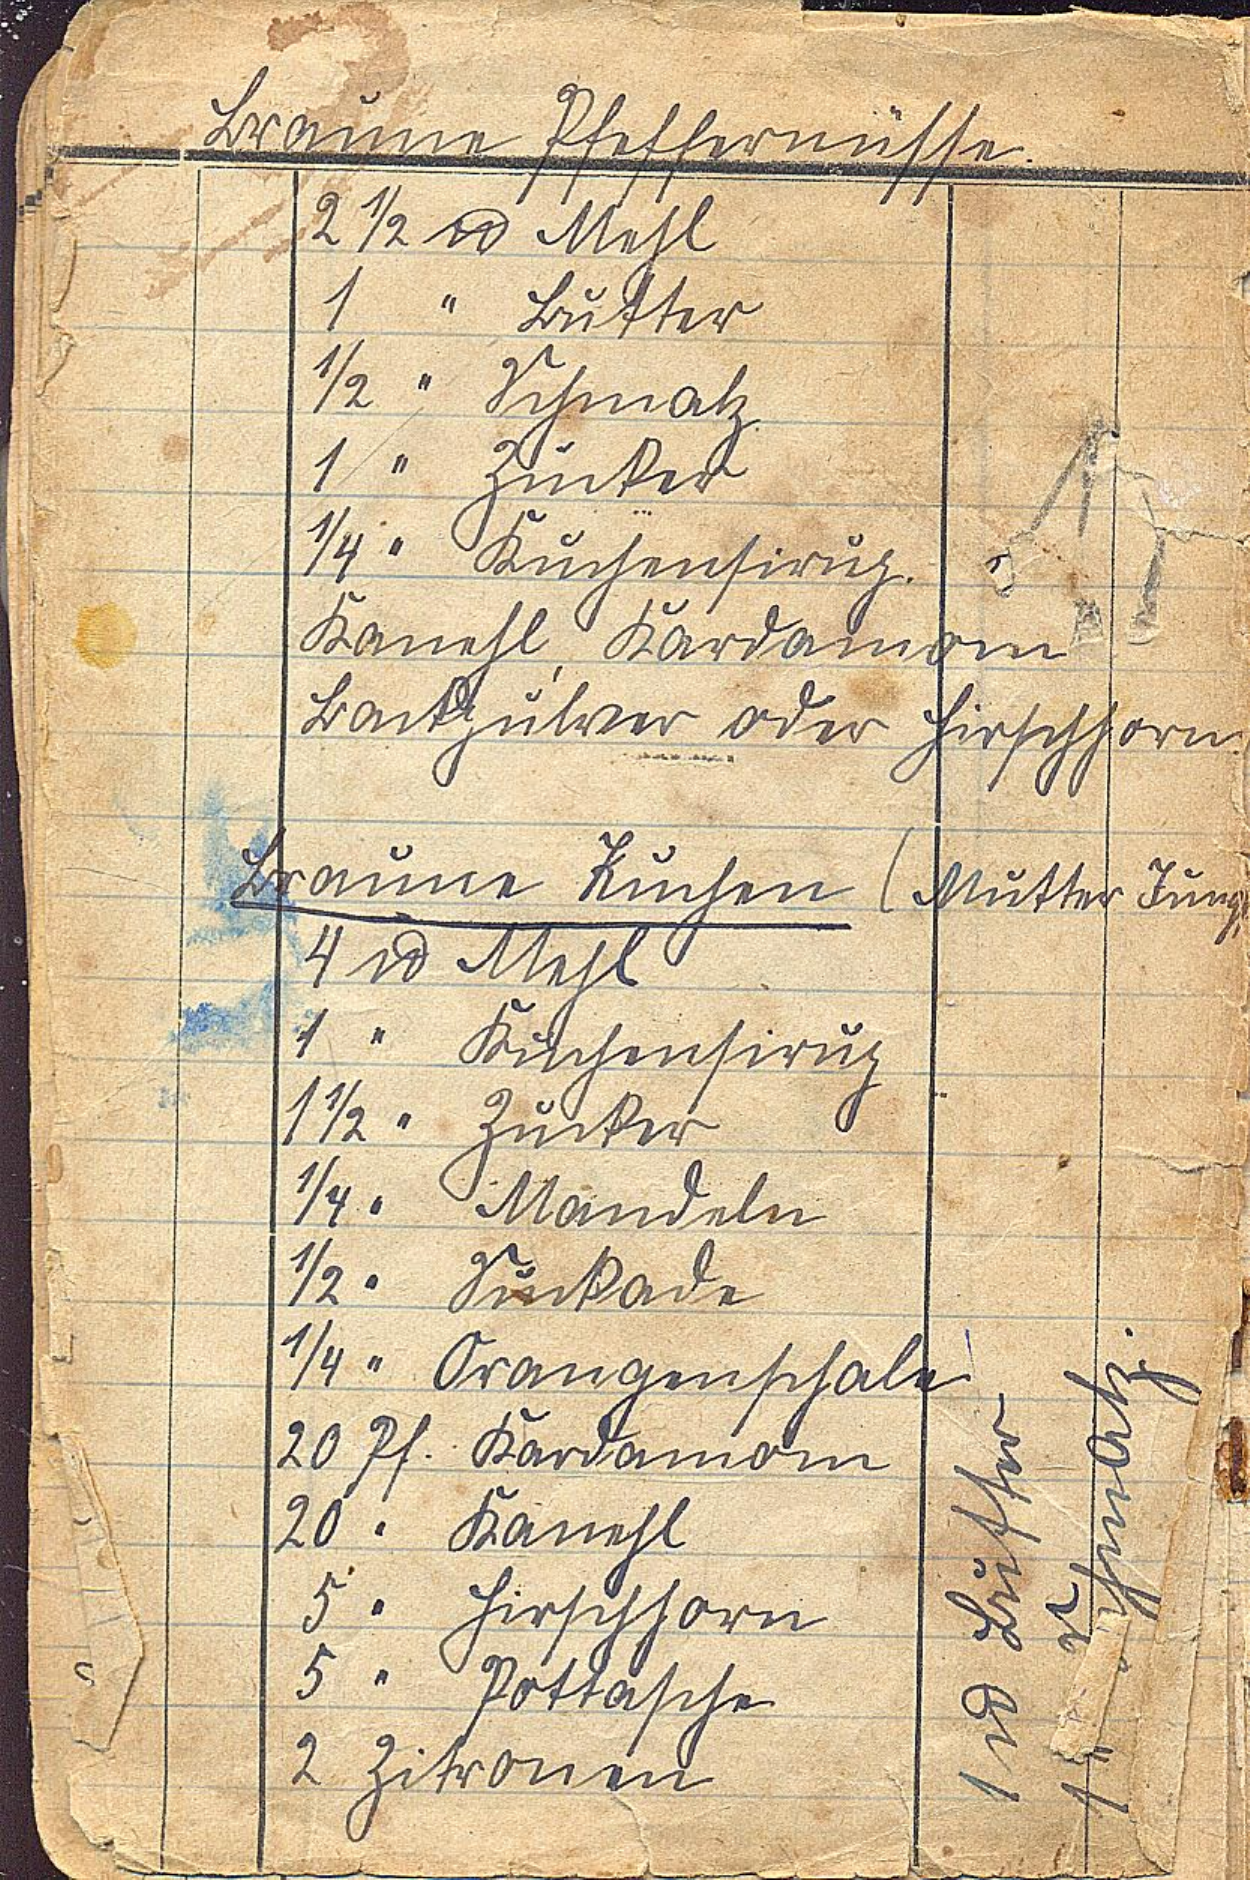 Braune Pfeffernüsse.
2 1/2 ℔ Mehl
1 " Butter
1/2 " Schmalz
1 " Zucker
1/4 " Kuchensirup.
Kanehl, Kardamom
Backpulver oder Hirschhorn
Braune Kuchen (Mutter Jung
4 ℔ Mehl
1 " Kuchensirup
1 1/2 " Zucker
1/4 " Mandeln
1/2 " Suckade
1/4 " Orangenschale
20 Pf. Kardamom
20 " Kanehl
5 " Hirschhorn
5 " Pottasche
2 Zitronen
1 ℔ Butter
1 " Schmalz.